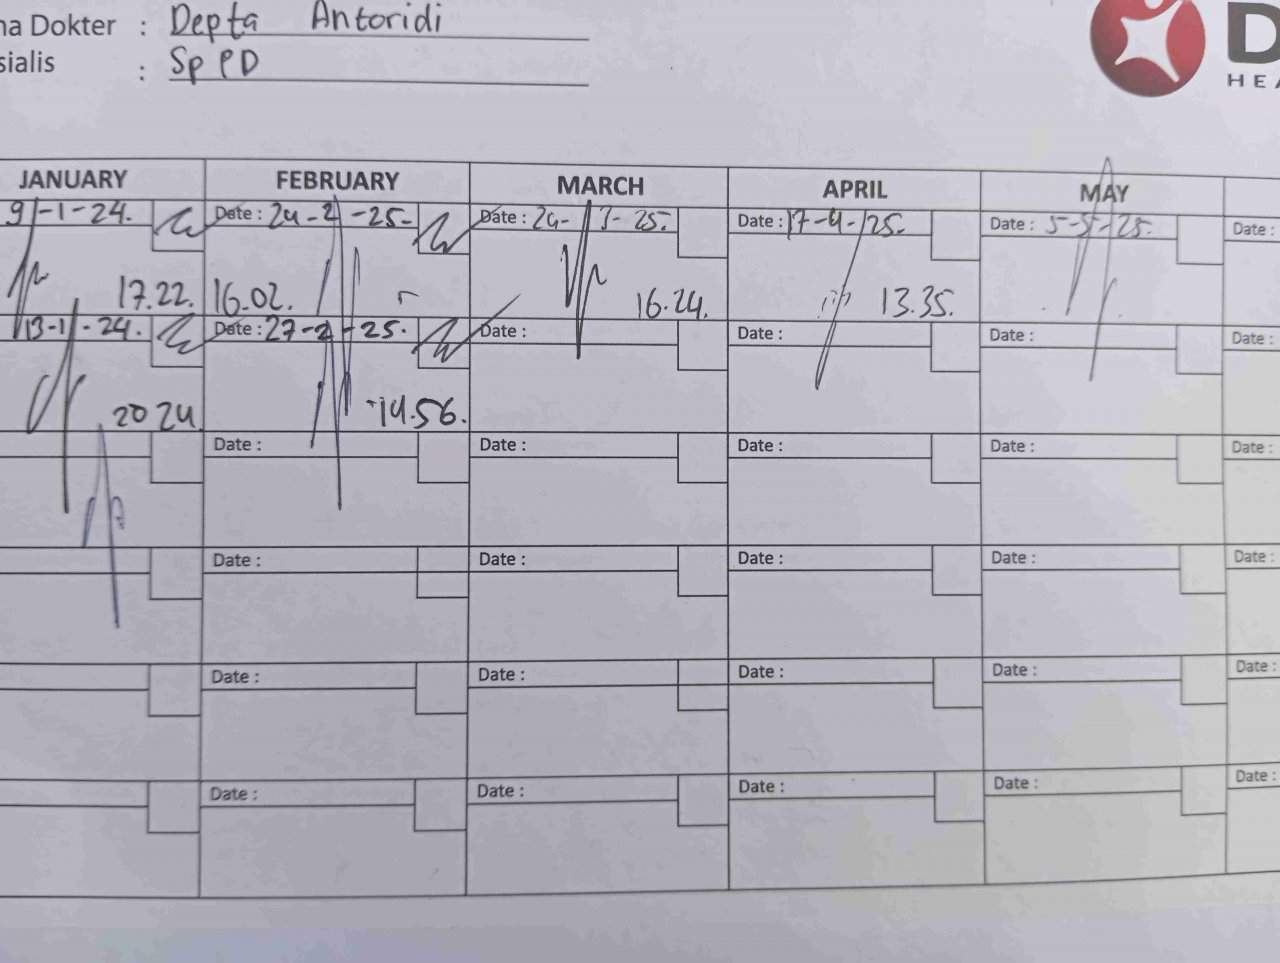 na Dokter : Depta Antoridi
sialis : Sp PD
D
HEA
JANUARY FEBRUARY MARCH APRIL MAY
9-1-24. Date : 24-2-25. Date : 24-3-25. Date : 17-4-25. Date : 5-5-25. Date :
17.22. 16.02. 16.24. 13.35.
13-1-24. Date : 27-2-25. Date : Date : Date : Date :
20 24. 14.56.
Date : Date : Date : Date : Date :
Date : Date : Date : Date : Date :
Date : Date : Date : Date : Date :
Date : Date : Date : Date : Date :